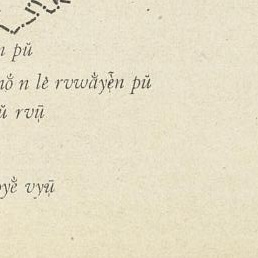 n pŭ
nŏ́ n lè rvwǎyẹ̌n pŭ
ŭ rvụ̆
yĕ̀ vyụ̆